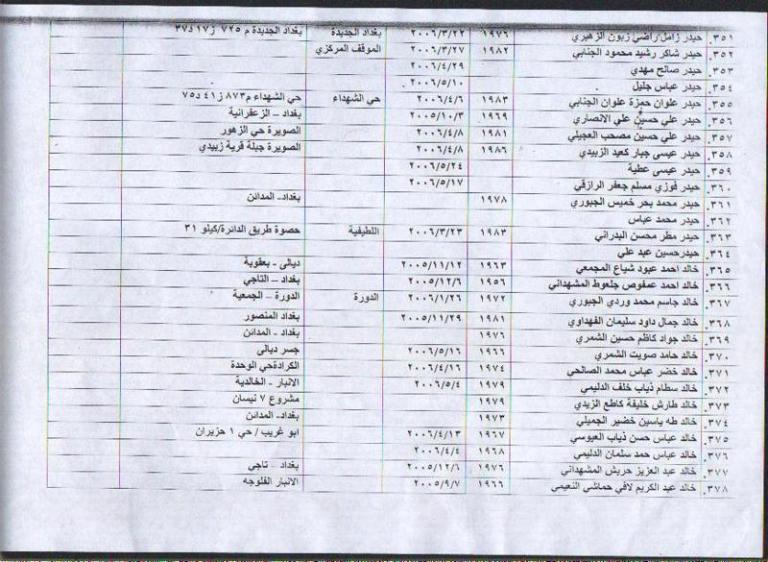 ٣٥١. حيدر زامل راضي زبون الزهيري ١٩٧٦ ٢٠٠٦/٣/٢٢ بغداد الجديدة بغداد الجديدة م ٧٢٥ ز١٧ د٣٧
٣٥٢. حيدر شاكر رشيد محمود الجنابي ١٩٨٢ ٢٠٠٦/٣/٢٧ الموقف المركزي
٣٥٣. حيدر صالح مهدي ٢٠٠٦/٤/٢٩
٣٥٤. حيدر عباس جليل ٢٠٠٦/٥/١٠
٣٥٥. حيدر علوان حمزة علوان الجنابي ١٩٨٣ ٢٠٠٦/٤/٦ حي الشهداء حي الشهداء م٨٧٣ ز٤١ د٧٥
٣٥٦. حيدر علي حسين علي الانصاري ١٩٦٩. ٢٠٠٥/١٠/٣ بغداد – الزعفرانية
٣٥٧. حيدر علي حسين مصحب العجيلي ١٩٨١ ٢٠٠٦/٤/٨ الصويرة حي الزهور
٣٥٨. حيدر عيسى جبار كعيد الزبيدي ١٩٨٦ ٢٠٠٦/٤/٨ الصويرة جبلة قرية زبيدي
٣٥٩. حيدر عيسى عطية ٢٠٠٦/٥/٢٤
٣٦٠. حيدر فوزي مسلم جعفر الرازقي ٢٠٠٦/٥/١٧
٣٦١. حيدر محمد بحر خميس الجبوري ١٩٧٨ بغداد- المدائن
٣٦٢. حيدر محمد عباس
٣٦٣. حيدر مطر محسن البدراني ١٩٨٣ ٢٠٠٦/٣/٢٣ اللطيفية حصوة طريق الدائرة/كيلو ٣١
٣٦٤. حيدرحسين عبد علي
٣٦٥. خالد احمد عبود شياع المجمعي ١٩٦٣ ٢٠٠٥/١١/١٢ ديالى - بعقوبة
٣٦٦. خالد احمد عمفوص جلعوط المشهداني ١٩٥٦ ٢٠٠٥/١٢/٦ بغداد – التاجي
٣٦٧. خالد جاسم محمد وردي الجبوري ١٩٧٢ ٢٠٠٦/١/٢٦ الدورة الدورة – الجمعية
٣٦٨. خالد جمال داود سليمان الفهداوي ١٩٨١ ٢٠٠٥/١١/٢٩ بغداد المنصور
٣٦٩. خالد جواد كاظم حسين الشمري ١٩٧٦ بغداد - المدائن
٣٧٠. خالد حامد صويت الشمري ١٩٦٦ ٢٠٠٦/٥/١٦ جسر ديالى
٣٧١. خالد خضر عباس محمد الصالحي ١٩٧٤ ٢٠٠٦/٤/١٦ الكرادةحي الوحدة
٣٧٢. خالد سطام ذياب خلف الدليمي ١٩٧٩ ٢٠٠٦/٥/٤ الانبار - الخالدية
٣٧٣. خالد طارش خليفة كاطع الزيدي ١٩٧٩ مشروع ٧ نيسان
٣٧٤. خالد طه ياسين خضير الجميلي ١٩٧٣ بغداد- المدائن
٣٧٥. خالد عباس حسن ذياب العيوسي ١٩٦٧ ٢٠٠٦/٤/١٣ ابو غريب / حي ١ حزيران
٣٧٦. خالد عباس حمد سلمان الدليمي ١٩٦٨ ٢٠٠٦/٤/٤
٣٧٧. خالد عبد العزيز حريش المشهداني ١٩٧٦ ٢٠٠٥/١٢/٦ بغداد - تاجي
٣٧٨. خالد عبد الكريم لافي حماشي النعيمي ١٩٦٦ ٢٠٠٥/٩/٧ الانبار الفلوجه